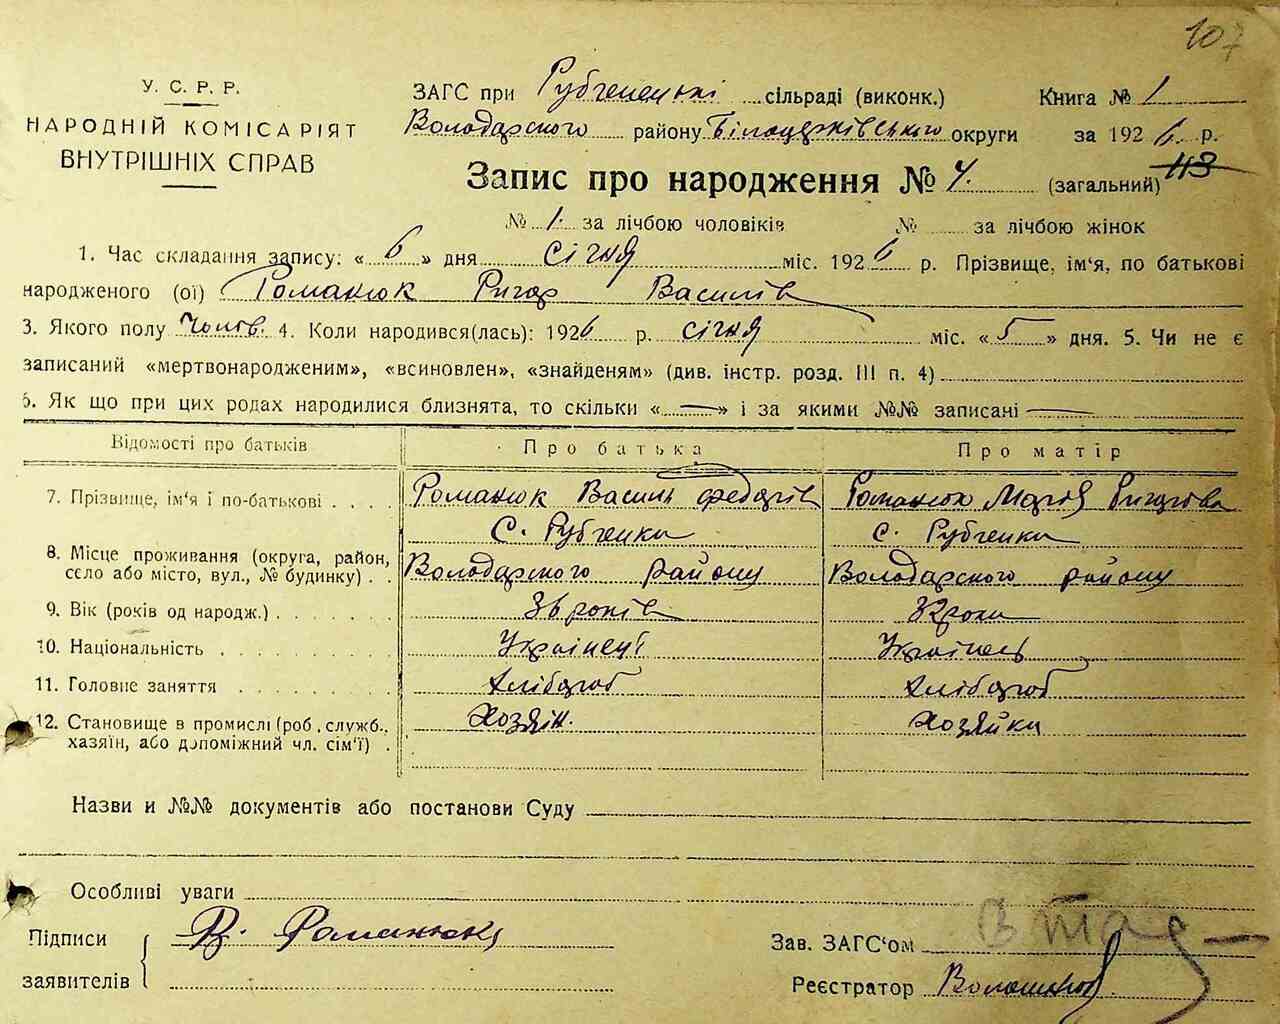 107
У. С. Р. Р.
НАРОДНІЙ КОМІСАРІЯТ
ВНУТРІШНІХ СПРАВ
ЗАГС при Рубченській сільраді (виконк.) Книга № 1
Володарского району Білоцерківського округи за 1926 р.
Запис про народження № 4. (загальний) 113
№ 1. за лічбою чоловіків № за лічбою жінок
1. Час складання запису: « 6 » дня січня міс. 1926 р. Прізвище, ім'я, по батькові
народженого (ої) Романюк Григор Василів
3. Якого полу Чолов. 4. Коли народився(лась): 1926 р. січня міс. « 5 » дня. 5. Чи не є
записаний «мертвонародженим», «всиновлен», «знайденям» (див. інстр. розд. III п. 4)
6. Як що при цих родах народилися близнята, то скільки « — » і за якими №№ записані —
Відомості про батьків Про батька Про матір
7. Прізвище, ім'я і по-батькові Романюк Василь Федорів Романюк Марія Григорова
8. Місце проживання (округа, район, село або місто, вул., № будинку) с. Рубченки с. Рубченки
Володарского району Володарского району
9. Вік (років од народж.) 36 років 32 роки
10. Національність Українец Українець
11. Головне заняття хлібороб хлібороб
12. Становище в промислі (роб., служб., Хозяін. Хозяйка
хазяїн, або допоміжний чл. сім'ї)
Назви и №№ документів або постанови Суду
Особливі уваги
Підписи В. Романюк
заявителів
Зав. ЗАГС'ом
Реєстратор